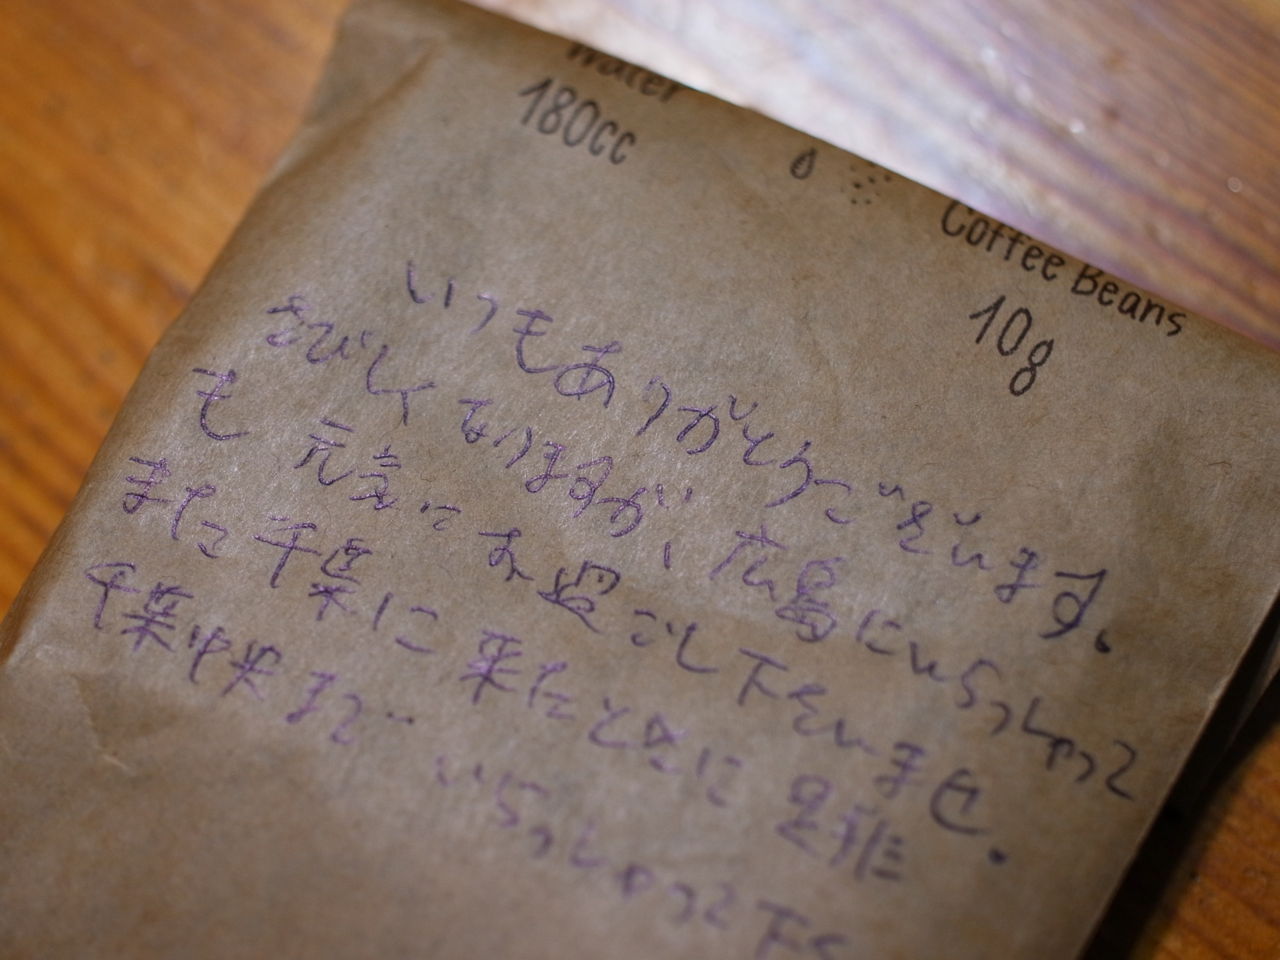 Water
180cc
Coffee Beans
10g
いつもありがとうございます。
さびしくなりますが、広島にいらっしゃって
も元気にお過ごし下さいませ。
また千葉に来たときに是非
千葉中央まで いらっしゃって下さ